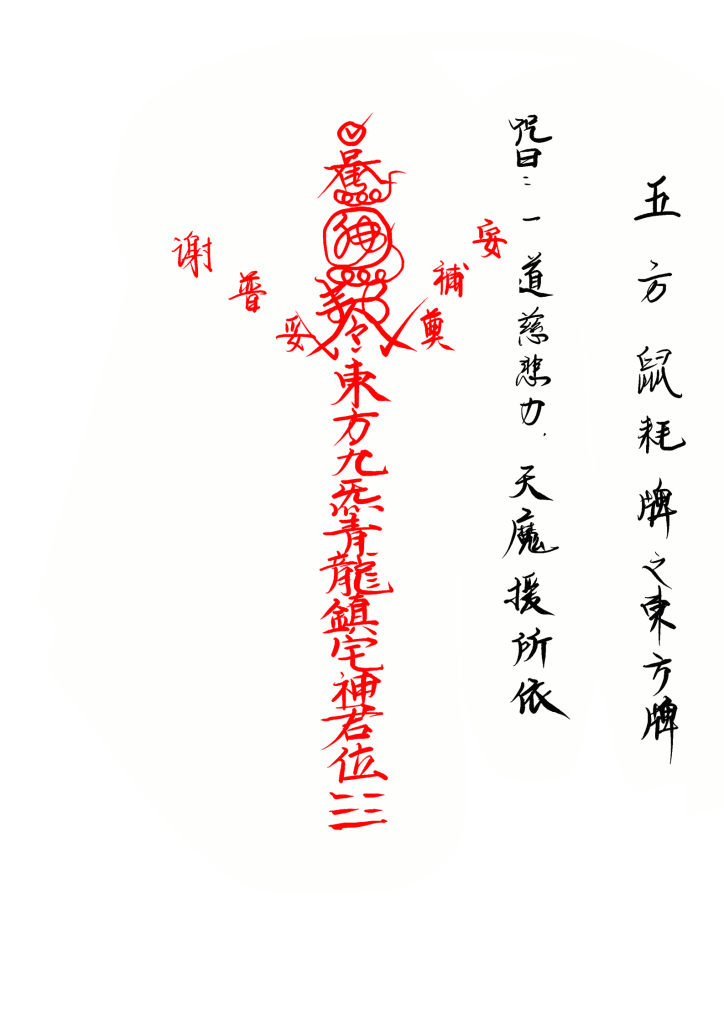 五方鼠耗牌之東方牌
咒曰：一道慈悲力．天魔援所依
安補奠
東方九炁青龍鎮宅神君位
妥普谢